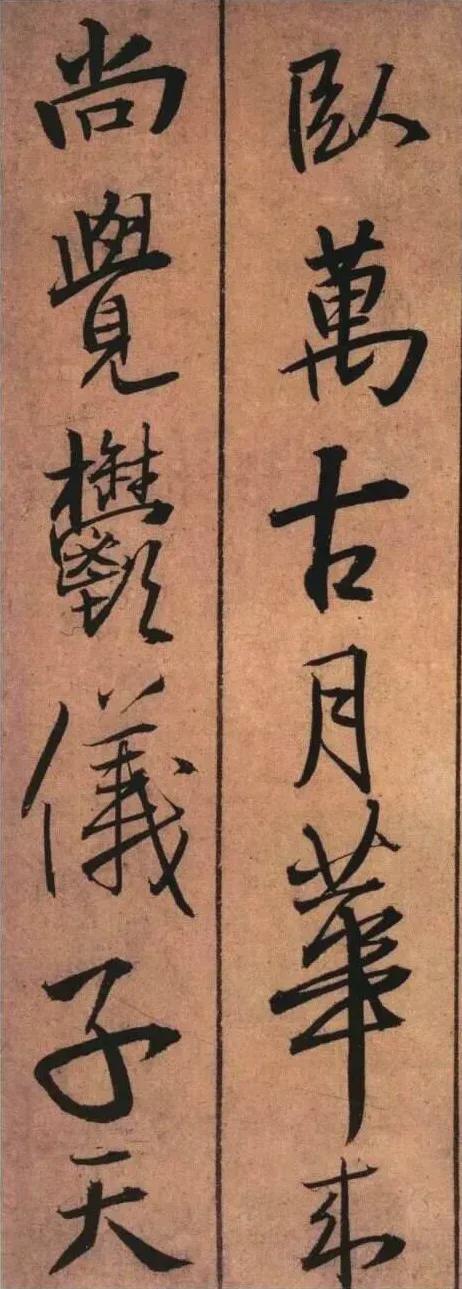 臥萬古月華來
尚覺鬱儀子天